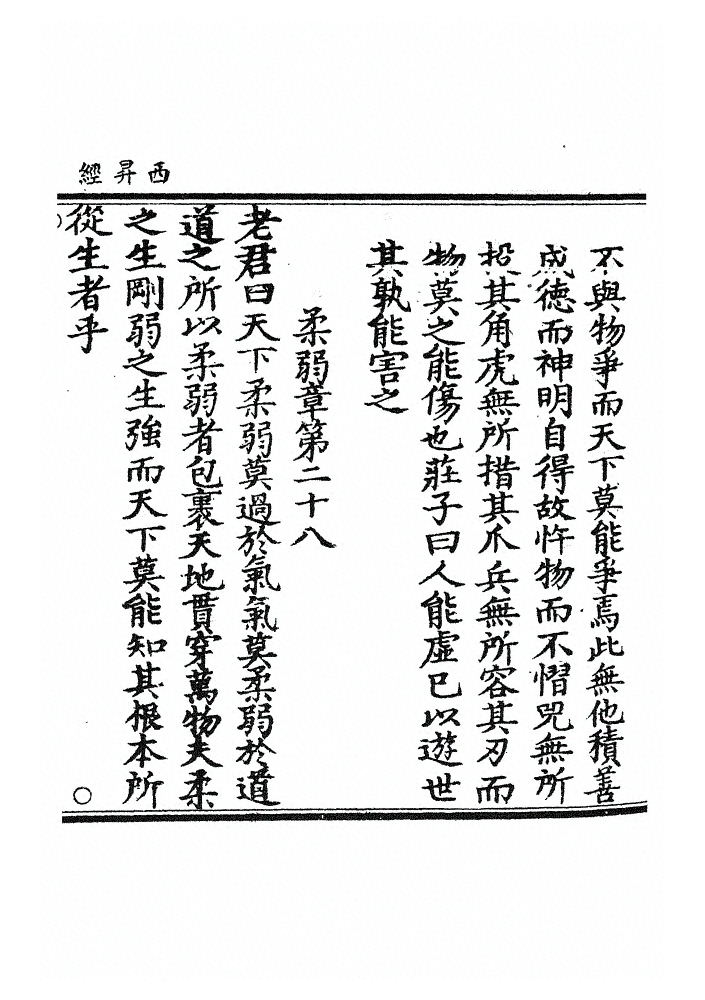 西昇經
不與物爭而天下莫能爭焉此無他積善
成德而神明自得故忤物而不慴兕無所
投其角虎無所措其爪兵無所容其刃而
物莫之能傷也莊子曰人能虛已以遊世
其孰能害之
柔弱章第二十八
老君曰天下柔弱莫過於氣氣莫柔弱於道
道之所以柔弱者包裹天地貫穿萬物夫柔
之生剛弱之生強而天下莫能知其根本所
從生者乎